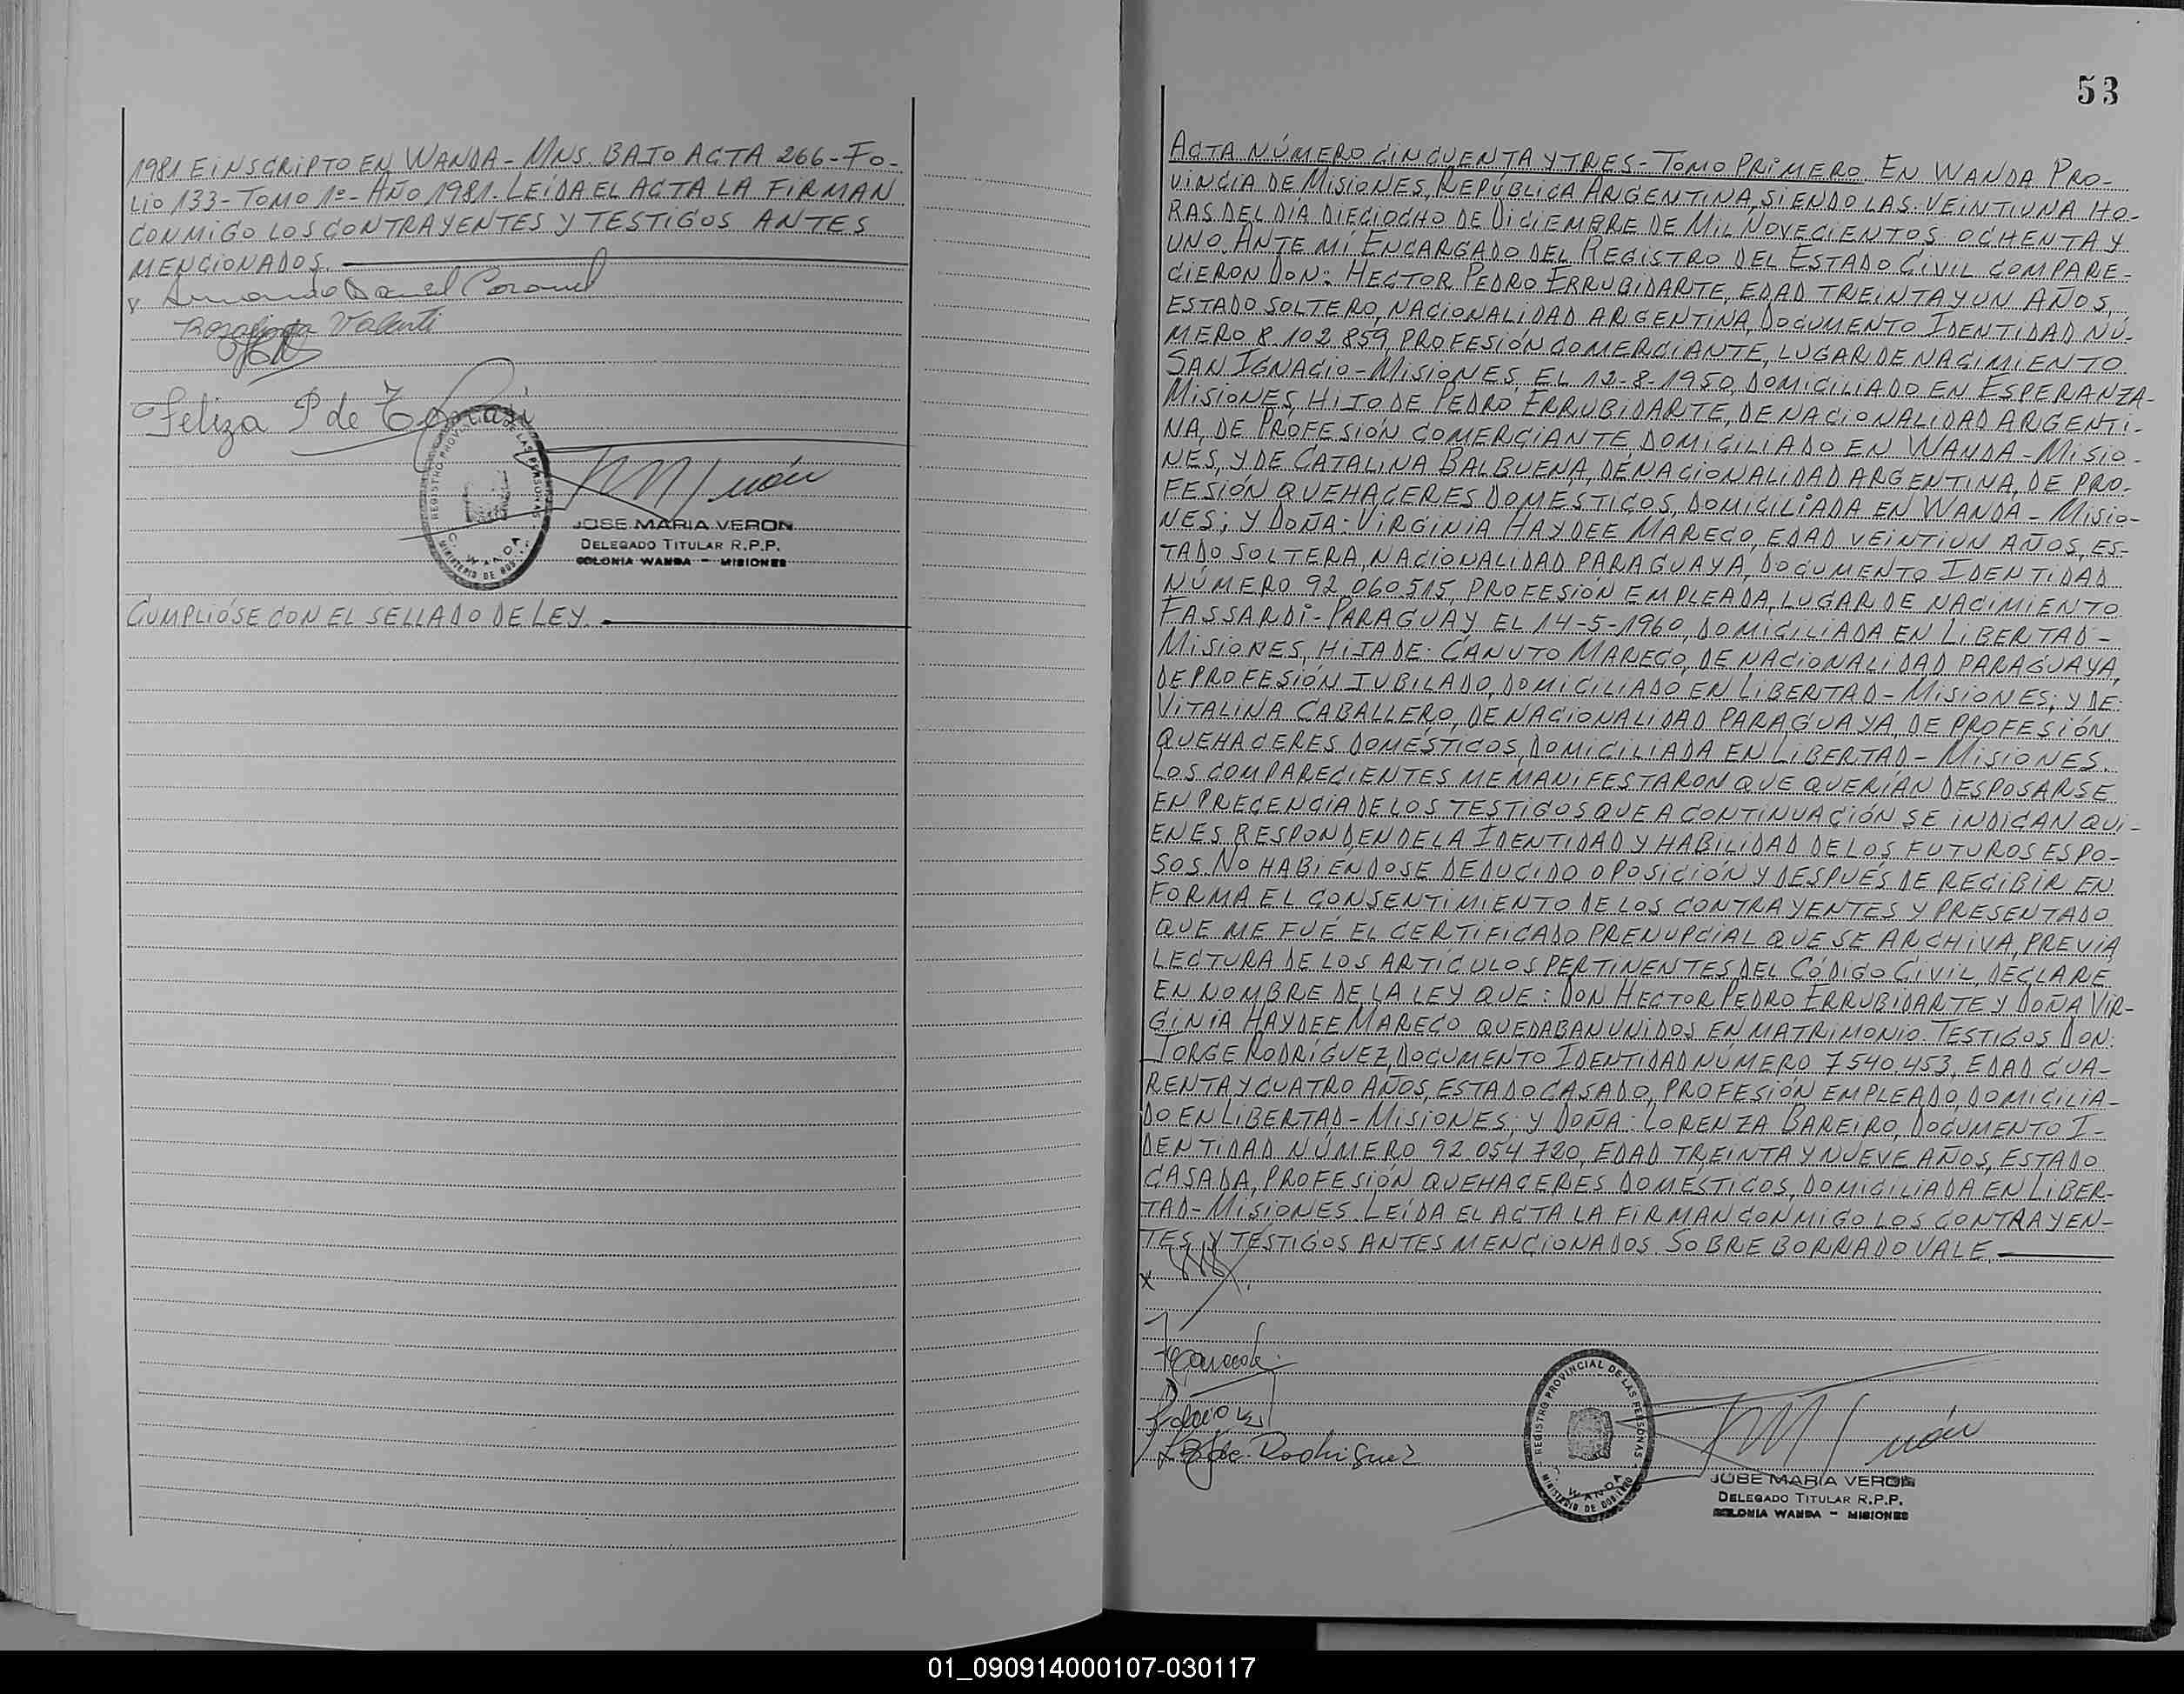 1981 E iNSCRiPTO EN WANDA - MNS. BAJO ACTA 266 - FO-
LiO 133 - TOMO 1º - AÑO 1981. LEÍDA EL ACTA LA FiRMAN
CONMiGO LOS CONTRAYENTES Y TESTiGOS ANTES
MENCiONADOS.
x Armando Daniel Coronel
Rosalinda Valenti
Feliza P de
REGISTRO PROVINCIAL DE LAS PERSONAS
C. WANDA
MINISTERIO DE GOBIERNO
JOSE MARIA VERON
DELEGADO TITULAR R.P.P.
COLONIA WANDA - MISIONES
CUMPLIÓSE CON EL SELLADO DE LEY.
53
ACTA NÚMERO CiNCUENTA Y TRES - TOMO PRiMERO EN WANDA PRO-
ViNCiA DE MiSiONES, REPÚBLiCA ARGENTiNA, SiENDO LAS: VEiNTiUNA HO-
RAS DEL DÍA DiECiOCHO DE DiCiEMBRE DE MiL NOVECiENTOS OCHENTA Y
UNO ANTE MÍ ENCARGADO DEL REGiSTRO DEL ESTADO CiViL COMPARE-
CiERON DON: HECTOR PEDRO ERRUBIDARTE, EDAD TREiNTA Y UN AÑOS,
ESTADO SOLTERO, NACiONALiDAD ARGENTiNA, DOCUMENTO IDENTiDAD NÚ-
MERO 8.102.859, PROFESiÓN COMERCiANTE, LUGAR DE NACiMiENTO
SAN IGNACiO - MiSiONES, EL 12-8-1950, DOMiCiLiADO EN ESPERANZA-
MiSiONES, HiJO DE PEDRO ERRUBIDARTE, DE NACiONALiDAD ARGENTi-
NA, DE PROFESiÓN COMERCiANTE, DOMiCiLiADO EN WANDA - MiSiO-
NES, Y DE CATALiNA BALBUENA, DE NACiONALiDAD ARGENTiNA, DE PRO-
FESiÓN QUEHACERES DOMESTiCOS, DOMiCiLiADA EN WANDA - MiSiO-
NES; Y DOÑA: ViRGiNiA HAYDEE MARECO, EDAD VEiNTiUN AÑOS, ES-
TADO SOLTERA, NACiONALiDAD PARAGUAYA, DOCUMENTO IDENTiDAD
NÚMERO 92.060.515, PROFESiÓN EMPLEADA, LUGAR DE NACiMiENTO
FASSARDi - PARAGUAY EL 14-5-1960, DOMiCiLiADA EN LiBERTAD -
MiSiONES, HiJA DE: CANUTO MARECO, DE NACiONALiDAD PARAGUAYA,
DE PROFESiÓN JUBiLADO, DOMiCiLiADO EN LiBERTAD - MiSiONES; Y DE:
ViTALiNA CABALLERO, DE NACiONALiDAD PARAGUAYA, DE PROFESiÓN
QUEHACERES DOMÉSTiCOS, DOMiCiLiADA EN LiBERTAD - MiSiONES.
LOS COMPARECiENTES ME MANiFESTARON QUE QUERÍAN DESPOSARSE
EN PRECENCiA DE LOS TESTiGOS QUE A CONTiNUACiÓN SE iNDiCAN QUi-
ENES RESPONDEN DE LA IDENTiDAD Y HABiLiDAD DE LOS FUTUROS ESPO-
SOS. NO HABiENDOSE DEDUCiDO OPOSiCiÓN Y DESPUÉS DE RECiBiR EN
FORMA EL CONSENTiMiENTO DE LOS CONTRAYENTES Y PRESENTADO
QUE ME FUÉ EL CERTiFiCADO PRENUPCiAL QUE SE ARCHiVA, PREViA
LECTURA DE LOS ARTÍCULOS PERTiNENTES DEL CÓDiGO CiViL, DECLARE
EN NOMBRE DE LA LEY QUE: DON HECTOR PEDRO ERRUBIDARTE Y DOÑA ViR-
GiNiA HAYDEE MARECO QUEDABAN UNiDOS EN MATRiMONiO. TESTiGOS DON:
JORGE RODRÍGUEZ, DOCUMENTO IDENTiDAD NÚMERO 7.540.453, EDAD CUA-
RENTA Y CUATRO AÑOS, ESTADO CASADO, PROFESiÓN EMPLEADO, DOMiCiLiA-
DO EN LiBERTAD - MiSiONES; Y DOÑA: LORENZA BAREiRO, DOCUMENTO I-
DENTiDAD NÚMERO 92.054.720, EDAD TREiNTA Y NUEVE AÑOS, ESTADO
CASADA, PROFESiÓN QUEHACERES DOMESTiCOS, DOMiCiLiADA EN LiBER-
TAD - MiSiONES. LEÍDA EL ACTA LA FiRMAN CONMiGO LOS CONTRAYEN-
TES Y TESTiGOS ANTES MENCiONADOS. SOBRE BORRADO VALE.
x
de Rodriguez
REGISTRO PROVINCIAL DE LAS PERSONAS
C. WANDA
MINISTERIO DE GOBIERNO
JOSE MARIA VERON
DELEGADO TITULAR R.P.P.
COLONIA WANDA - MISIONES
01_090914000107-030117